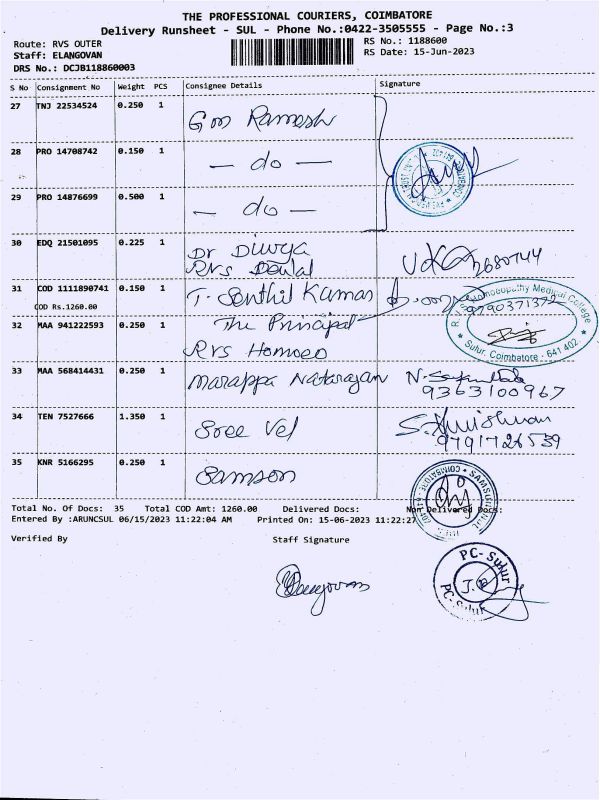 THE PROFESSIONAL COURIERS, COIMBATORE
Delivery Runsheet - SUL - Phone No.:0422-3505555 - Page No.:3
Route: RVS OUTER
RS No.: 1188600
Staff: ELANGOVAN
RS Date: 15-Jun-2023
DRS No.: DCJB118860003
S No Consignment No Weight PCS Consignee Details Signature
27 TNJ 22534524 0.250 1 Gm Ramesh
28 PRO 14708742 0.150 1 — do —
29 PRO 14876699 0.500 1 — do —
30 EDQ 21501095 0.225 1 Dr Divya
RVS Dental
31 COD 1111890741 0.150 1 T. Senthil Kumar
COD Rs.1260.00
9790371372
32 MAA 941222593 0.250 1 The Principal
RVS Homoeo
Homoeopathy Medical College
Sulur, Coimbatore - 641 402
33 MAA 568414431 0.250 1 Marappa Natarajan
9363100967
34 TEN 7527666 1.350 1 Sree Vel
9791726539
35 KNR 5166295 0.250 1 Samson
Total No. Of Docs: 35 Total COD Amt: 1260.00 Delivered Docs: Non Delivered Docs:
Entered By :ARUNCSUL 06/15/2023 11:22:04 AM Printed On: 15-06-2023 11:22:27
Verified By Staff Signature
Elangovan
PC-Sulur
PC-Sulur